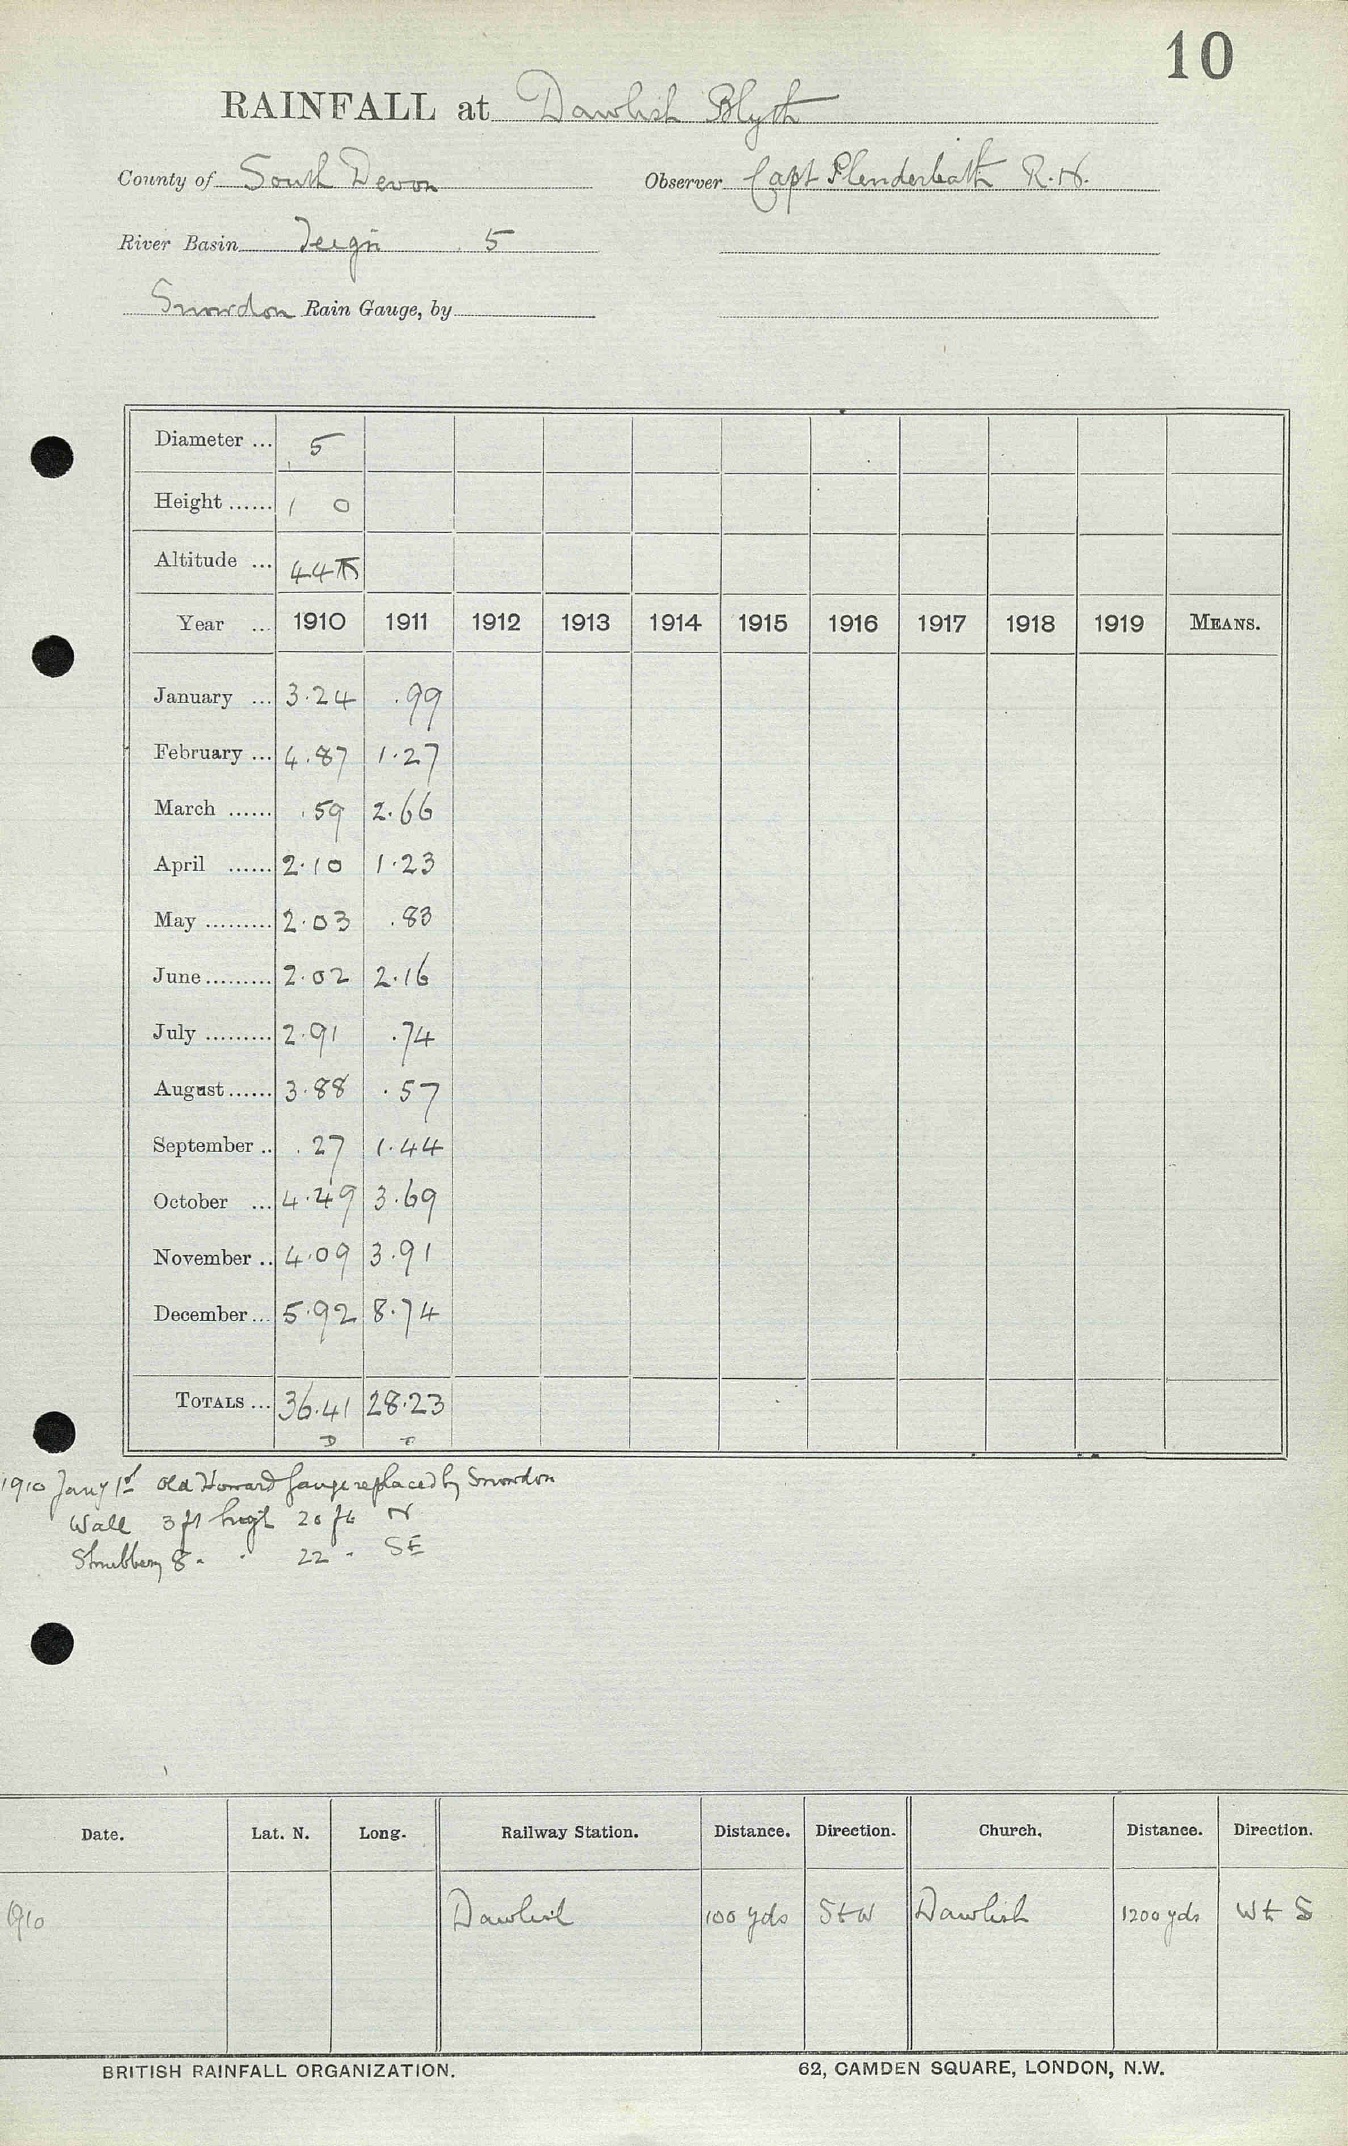 10
RAINFALL at Dawlish Blyth
County of South Devon Observer Capt Plenderleath R.N.
River Basin Teign 5
Snowdon Rain Gauge, by
Diameter ... 5
Height ...... 1 0
Altitude ... 44
Year ... 1910 1911 1912 1913 1914 1915 1916 1917 1918 1919 MEANS.
January ... 3.24 .99
February ... 4.87 1.27
March ...... .59 2.66
April ...... 2.10 1.23
May ......... 2.03 .83
June ......... 2.02 2.16
July ......... 2.91 .74
August ...... 3.88 .57
September .. .27 1.44
October ... 4.49 3.69
November .. 4.09 3.91
December ... 5.92 8.74
TOTALS ... 36.41 28.23
1910 Jany 1st Old Howard Gauge replaced by Snowdon
Wall 3 ft high 20 ft N
Shrubbery 8 " " 22 " SE
Date. Lat. N. Long. Railway Station. Distance. Direction. Church. Distance. Direction.
1910 Dawlish 100 yds S t W Dawlish 1200 yds W t S
BRITISH RAINFALL ORGANIZATION. 62, CAMDEN SQUARE, LONDON, N.W.